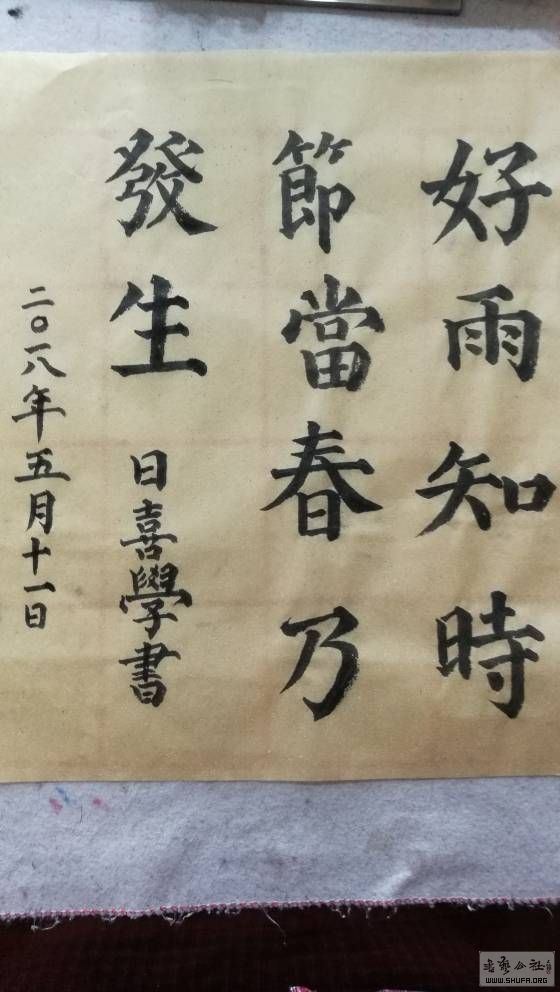 好雨知時
節當春乃
發生
日喜學書
二〇一八年五月十一日
書藝公社
WWW.SHUFA.ORG